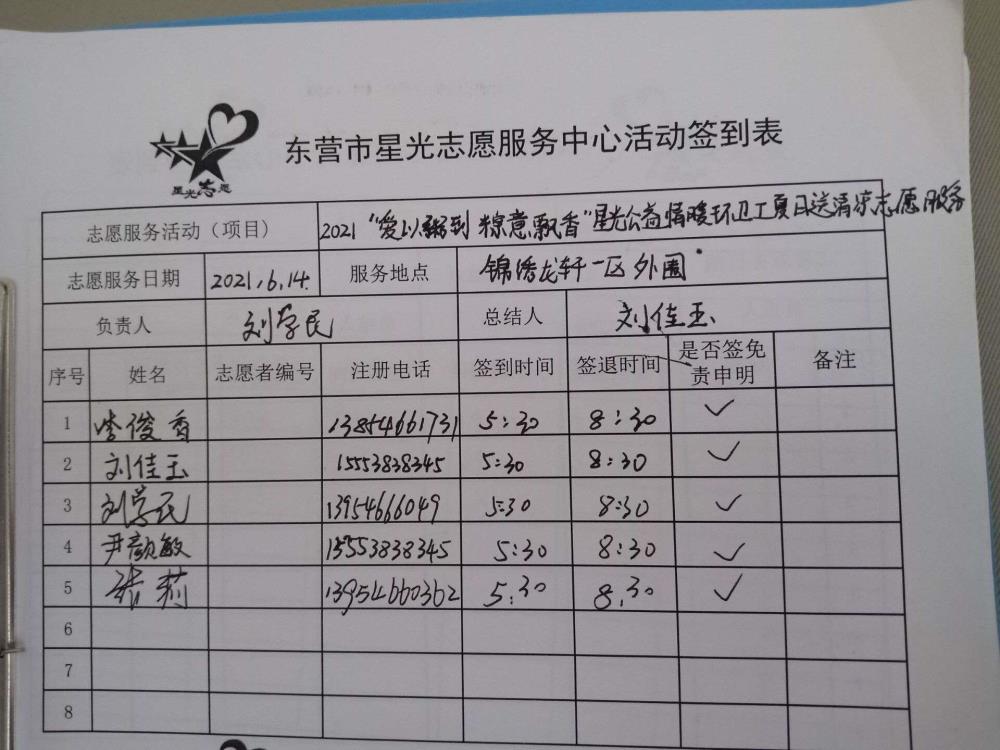 星光志愿
东营市星光志愿服务中心活动签到表
志愿服务活动（项目） 2021 "爱以粽到 粽意飘香" 星光公益情暖环卫工夏日送清凉志愿服务
志愿服务日期 2021.6.14. 服务地点 锦绣龙轩一区外围
负责人 刘学民 总结人 刘佳玉
序号 姓名 志愿者编号 注册电话 签到时间 签退时间 是否签免
责申明 备注
1 李俊香 13854661731 5:30 8:30 ✓
2 刘佳玉 15553838345 5:30 8:30 ✓
3 刘学民 13954666049 5:30 8:30 ✓
4 尹颜敏 13553838345 5:30 8:30 ✓
5 张莉 13954660362 5:30 8:30 ✓
6
7
8